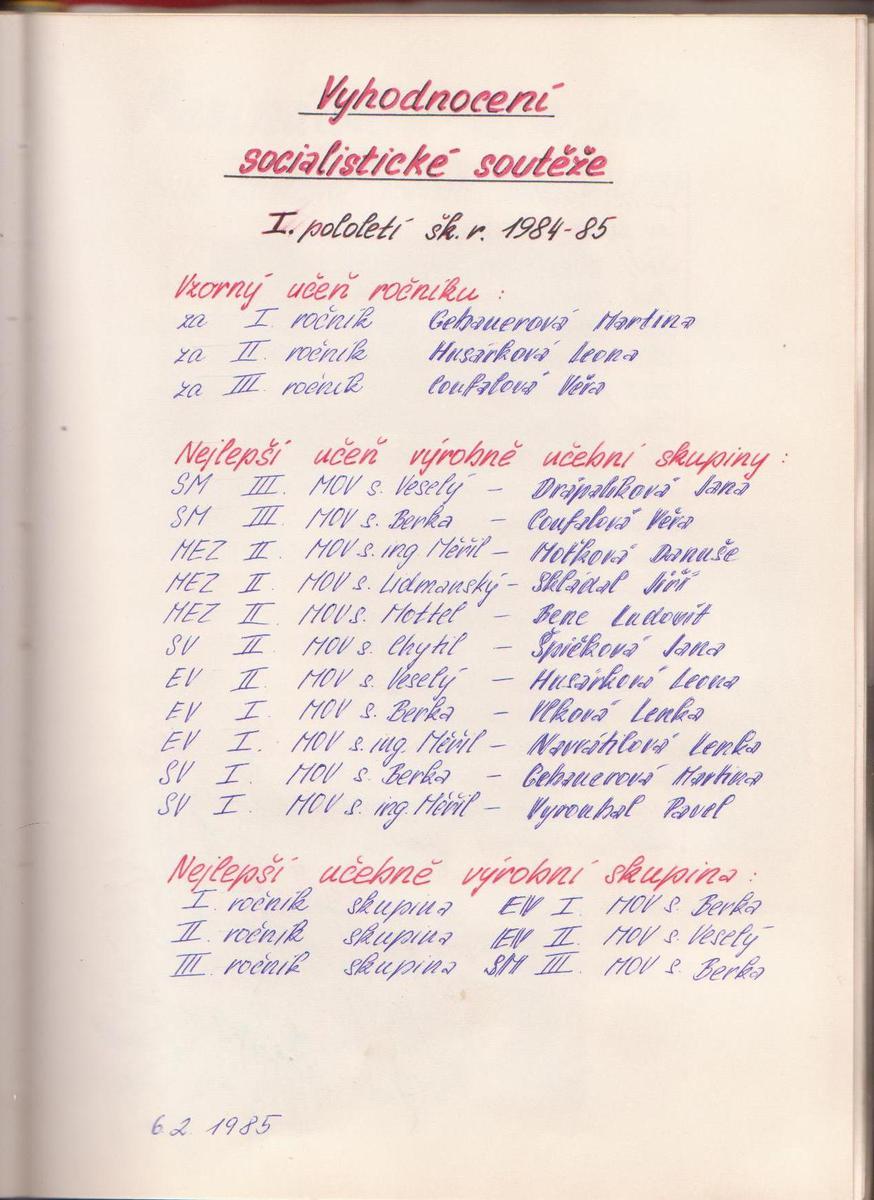 Vyhodnocení
socialistické soutěže
I. pololetí šk. r. 1984-85
Vzorný učeň ročníku :
za I. ročník Gebauerová Martina
za II. ročník Husárková Leona
za III. ročník Coufalová Věra
Nejlepší učeň výrobně učební skupiny :
SM III. MOV s. Veselý - Drápalíková Jana
SM III. MOV s. Berka - Coufalová Věra
MEZ II. MOV s. ing Měřil - Moťková Danuše
MEZ II. MOV s. Lidmanský - Skládal Jiří
MEZ II. MOV s. Mottel - Bene Ludovít
SV II. MOV s. Chytil - Špičková Jana
EV II. MOV s. Veselý - Husárková Leona
EV I. MOV s. Berka - Vlková Lenka
EV I. MOV s. ing. Měřil - Navrátilová Lenka
SV I. MOV s. Berka - Gebauerová Martina
SV I. MOV s. ing. Měřil - Vyroubal Pavel
Nejlepší učebně výrobní skupina :
I. ročník skupina EV I. MOV s. Berka
II. ročník skupina EV II. MOV s. Veselý
III. ročník skupina SM III. MOV s. Berka
6.2. 1985